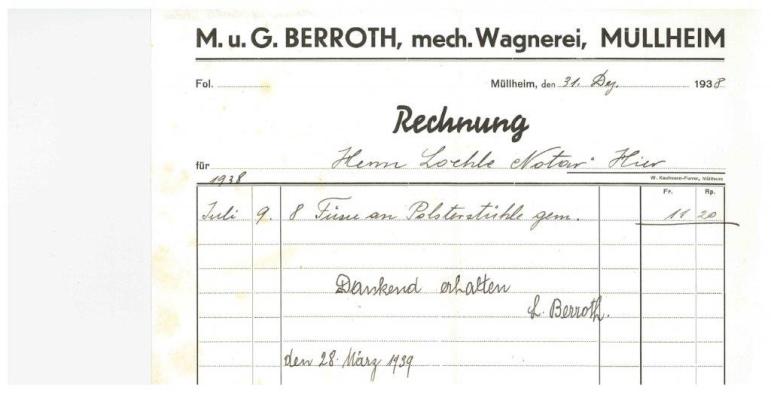 M. u. G. BERROTH, mech. Wagnerei, MÜLLHEIM
Fol. Müllheim, den 31. Dez. 1938
Rechnung
für Herrn Lochle Notar Hier
W. Kaufmann-Furrer, Müllheim
1938 Fr. Rp.
Juli 9. 8 Füsse an Polsterstühle gem. 11 20
Dankend erhalten
h. Berroth.
den 28. März 1939